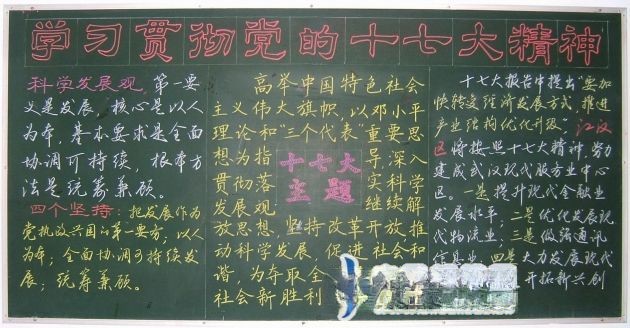 学习贯彻党的十七大精神
科学发展观,第一要
义是发展,核心是以人
为本,基本要求是全面
协调可持续,根本方
法是统筹兼顾。
四个坚持:把发展作为
党执政兴国的第一要务;以人
为本;全面协调可持续发
展;统筹兼顾。
高举中国特色社会
主义伟大旗帜,以邓小平
理论和"三个代表"重要思
想为指导,深入
贯彻落实科学
发展观,继续解
放思想,坚持改革开放,推
动科学发展,促进社会和
谐,为夺取全
社会新胜利
十七大
主题
十七大报告中提出"要加
快转变经济发展方式,推进
产业结构优化升级"江汉
区将按照十七大精神,努力
建成武汉现代服务业中心
区。一是提升现代金融业
发展水平,二是优化发展现
代物流业;三是做强通讯
信息业,四是大力发展现代
开拓新兴创